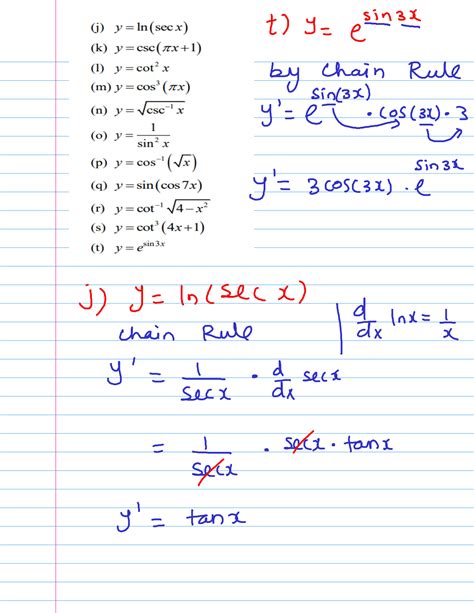 (j) y = ln(sec x)
(k) y = csc(πx+1)
(l) y = cot² x
(m) y = cos³(πx)
(n) y = √(csc⁻¹ x)
(o) y = 1/(sin² x)
(p) y = cos⁻¹(√x)
(q) y = sin(cos 7x)
(r) y = cot⁻¹ √(4−x²)
(s) y = cot³(4x+1)
(t) y = e^(sin 3x)
t) y = e^(sin3x)
by Chain Rule
y' = e^(sin(3x)) · cos(3x) · 3
y' = 3 cos(3x) · e^(sin3x)
j) y = ln(sec x)
Chain Rule
d/dx lnx = 1/x
y' = 1/secx · d/dx secx
= 1/secx · secx · tanx
y' = tanx